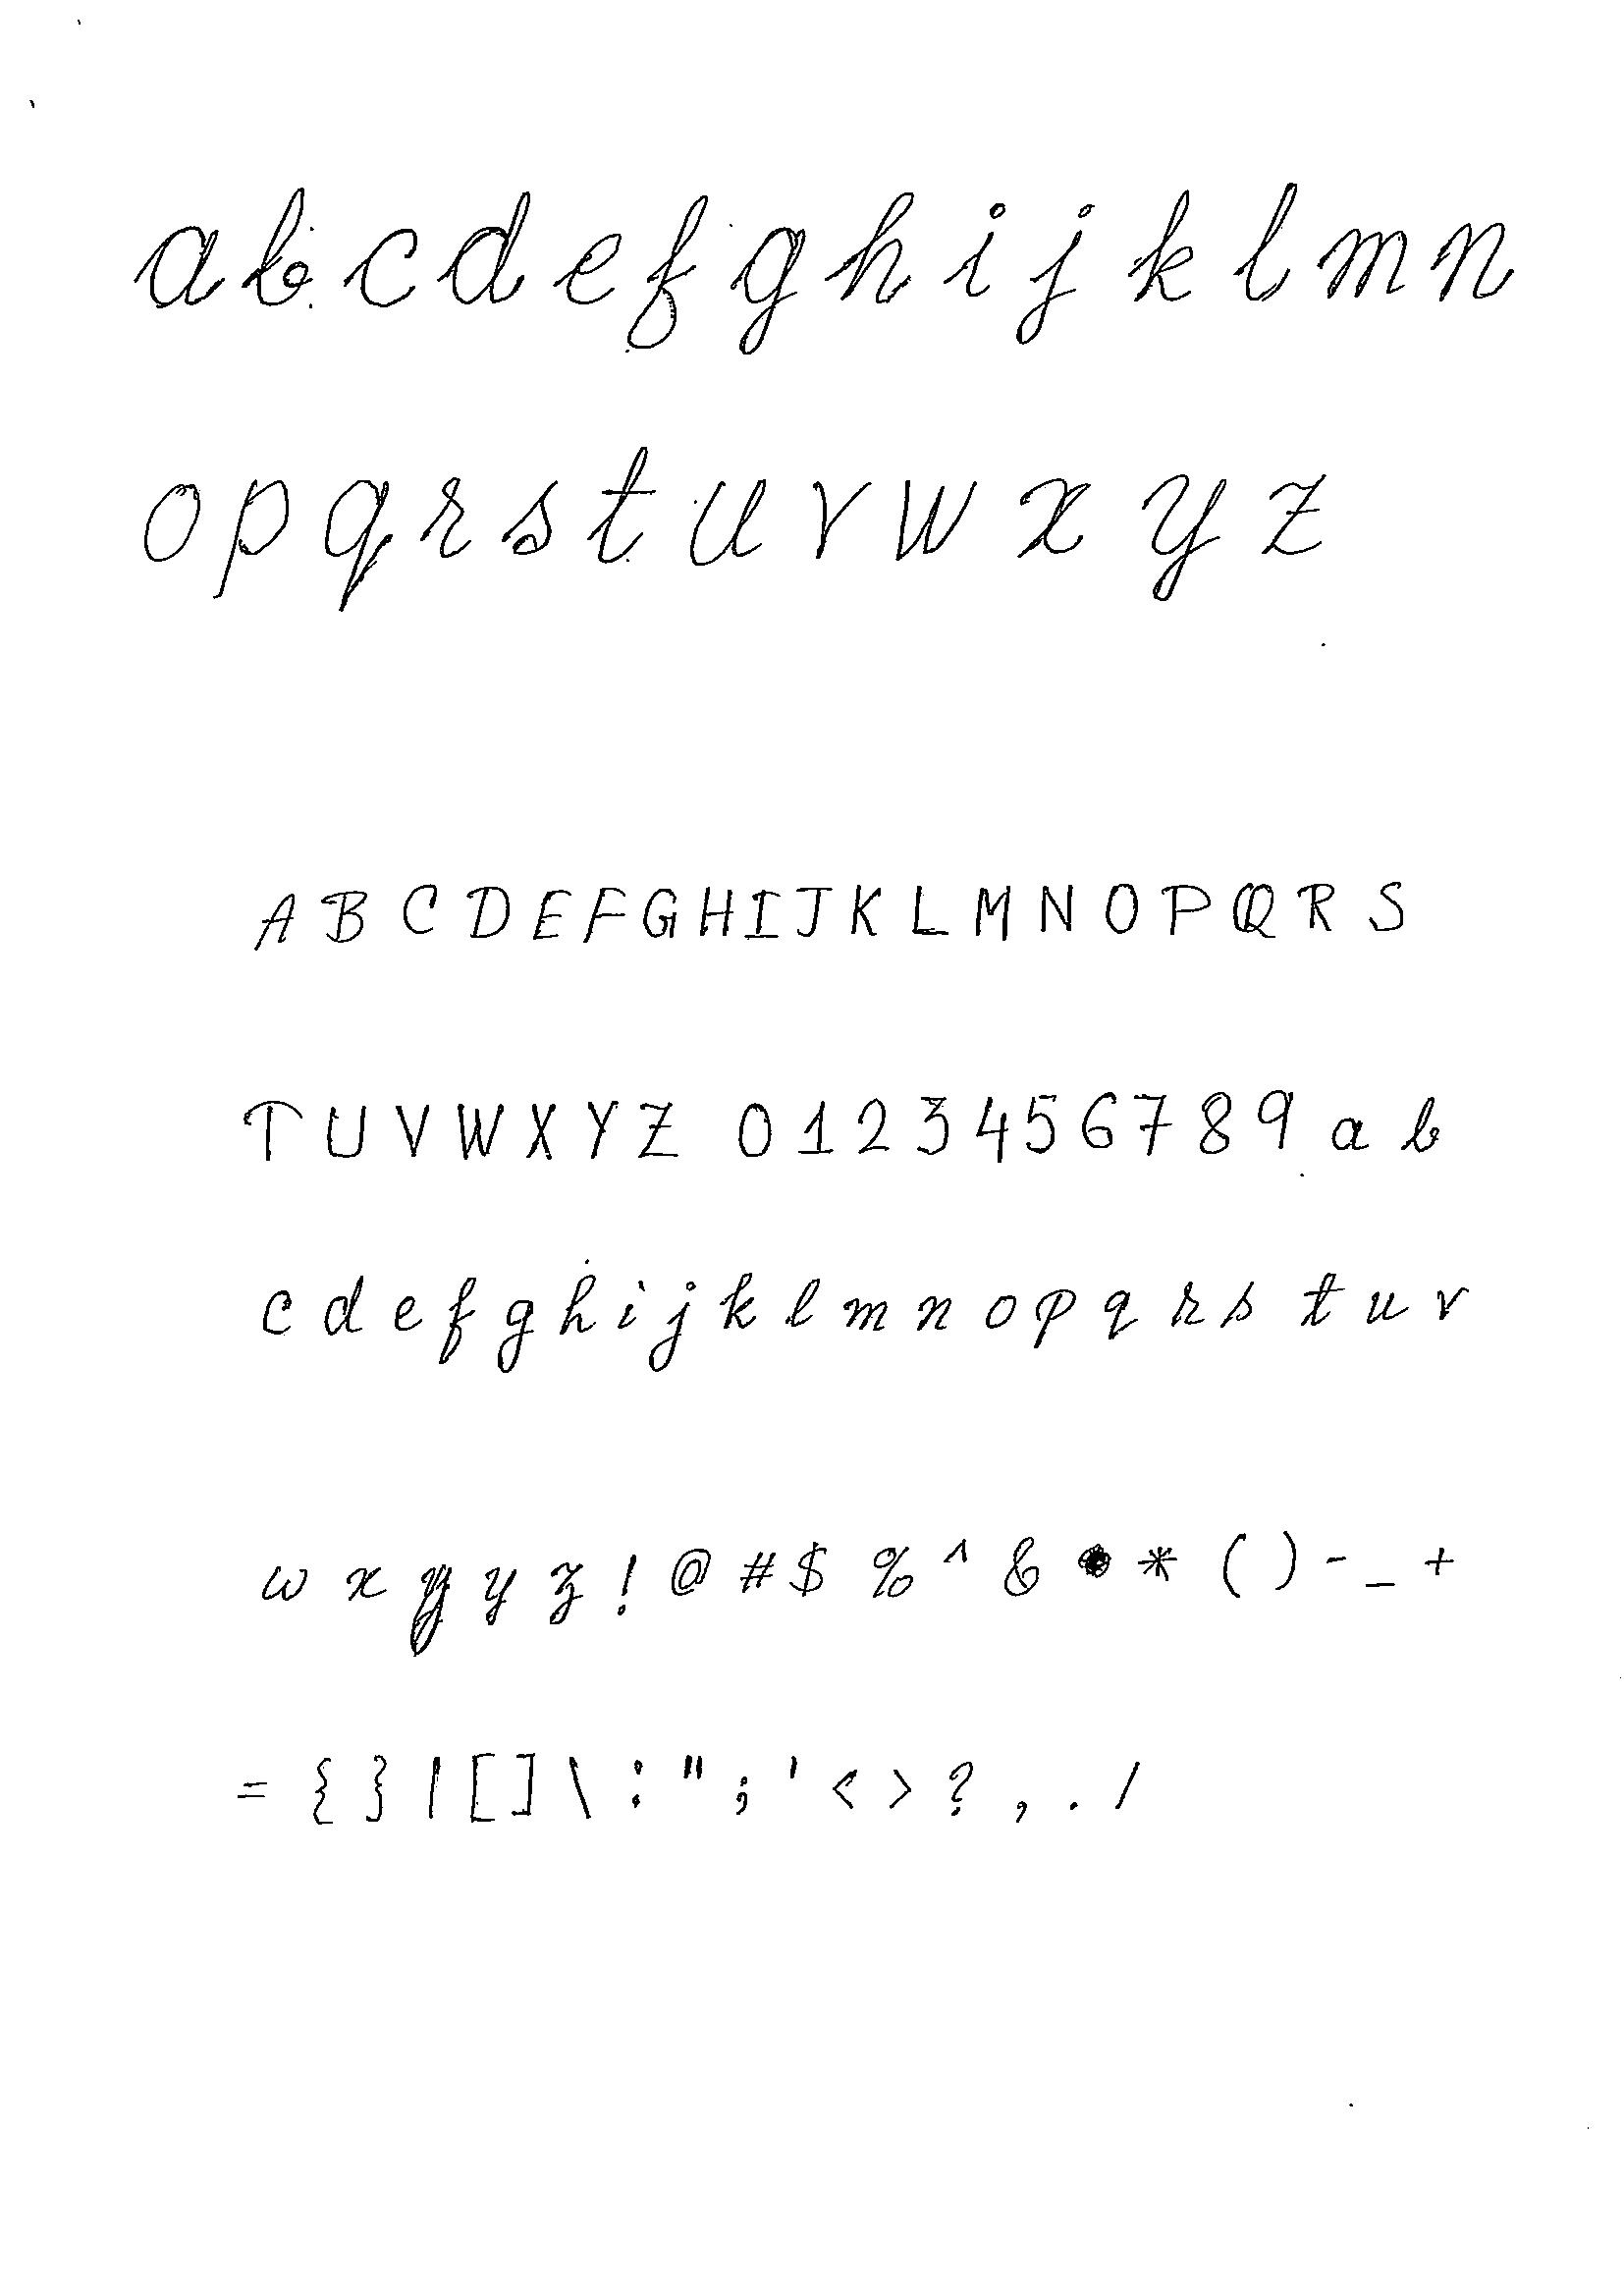 a b c d e f g h i j k l m n
o p q r s t u v w x y z
A B C D E F G H I J K L M N O P Q R S
T U V W X Y Z 0 1 2 3 4 5 6 7 8 9 a b
c d e f g h i j k l m n o p q r s t u v
w x y y z ! @ # $ % ^ & * ( ) - _ +
= { } | [ ] \ : " ; ' < > ? , . /